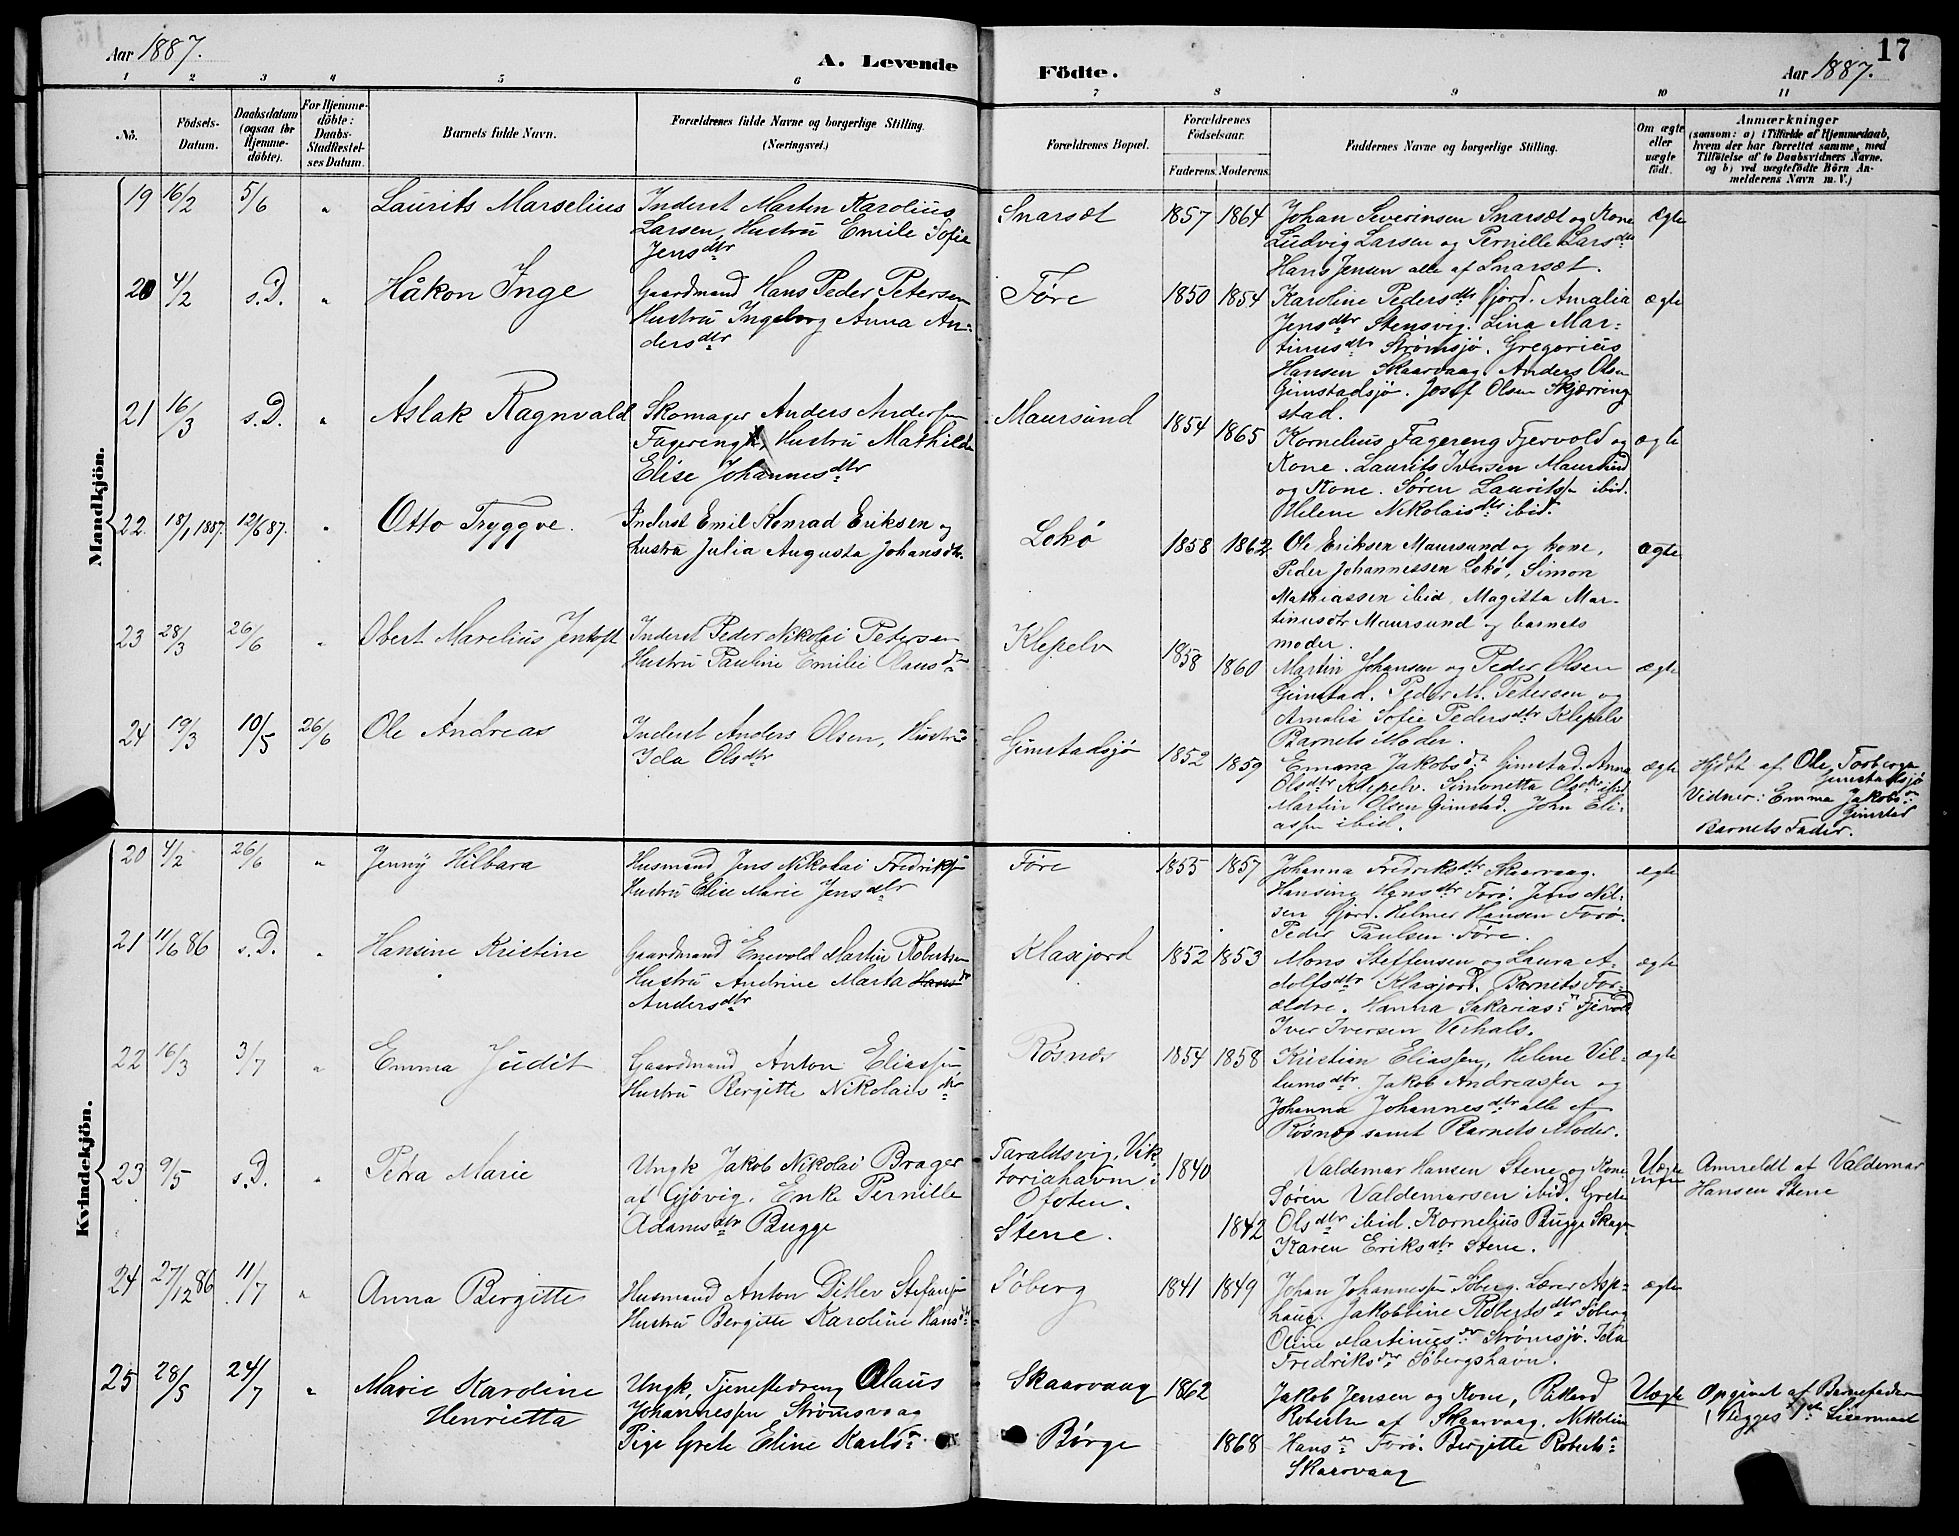 Aar 1887.
A. Levende Födte.
Aar 1887.
17
1 2 3 4 5 6 7 8 9 10 11
No.
Födsels-Datum.
Daabsdatum (ogsaa for Hjemme-döbte).
For Hjemme-döbte: Daabs-Stadfæstel-ses Datum.
Barnets fulde Navn.
Forældrenes fulde Navne og borgerlige Stilling.
(Næringsvei.)
Forældrenes Bopæl.
Forældrenes Födselsaar.
Faderens. Moderens.
Faddernes Navne og borgerlige Stilling.
Om ægte eller uægte födt.
Anmærkninger
(saasom: a) i Tilfælde af Hjemmedaab,
hvem der har forrettet samme, med
Tilföielse af to Daabsvidners Navne,
og b) ved uægtefödte Börn An-
melderens Navn m. V.)
Mandkjön.
19 16/2 5/6 " Laurits Marselius
Inderst Martin Karolius
Larsen, Hustru Emile Sofie
Jensdtr
Snarsæt 1857 1864
Johan Severinsen Snarsæt og Kone
Ludvig Larsen og Pernille Larsdtr
Hans Jensen alle af Snarsæt.
ægte
20 4/2 s.D. " Håkon Inge
Gaardmand Hans Peder Petersen
Hustru Ingeborg Anna An-
dersdtr
Føre 1850 1854
Karoline Pedersdtr Gjørd. Amalia
Jensdtr Stensvig. Lina Mar-
tinusdtr Strømsjø. Gregorius
Hansen Skaarvaag. Anders Olsen
Gimstadsjø. Josef Olsen Skjærring
stad.
ægte
21 16/3 s.D. " Aslak Ragnvald
Skomager Anders Andersen
Fagereng, Hustru Mathilde
Elise Johannesdtr
Maursund 1854 1865
Kornelius Fagereng Fjervold og
Kone. Laurits Iversen Maursund
og Kone. Søren Lauritsen ibid.
Helene Nikolaisdtr ibid.
ægte
22. 18/1 1887. 12/6 87. " Otto Tryggve.
Inderst Emil Konrad Eriksen og
hustru Julia Augusta Johansdtr.
Lokø 1858 1862
Ole Eriksen Maursund og kone,
Peder Johannessen Lokø, Simon
Mathiassen ibid. Magitta Mar-
tinusdtr Maursund og barnets
moder.
ægte
23 28/3 26/6 " Obert Marelius Jentoft
Inderst Peder Nikolai Petersen
Hustru Pauline Emilie Olausdtr
Klepelv 1858 1860
Martin Johansen og Peder Olsen
Gimstad. Peder M. Petersen og
Amalia Sofie Pedersdtr Klepelv
Barnets Moder.
ægte
24 19/3 10/5 26/6 Ole Andreas
Inderst Anders Olsen, Hustru
Ida Olsdtr
Gimstadsjø 1852 1859
Emma Jakobsdtr Gimstad. Anna
Olsdtr Klepelv. Simonetta Olsdtr ibid
Martin Olsen Gimstad. John Eli-
assen ibid.
ægte
Hjdbt af Ole Torbergsen
Gimstadsjø
Vidner: Emma Jakobsdtr
Gimstad
Barnets Fader.
Kvindekjön.
20 4/2 26/6 " Jenny Hilbara
Husmand Jens Nikolai Fredriksen
Hustru Elise Marie Jensdtr
Føre 1855 1857
Johanna Fredriksdtr Skaarvaag.
Hansine Hansdtr Forø. Jens Nil-
sen Gjørd. Helmer Hansen Forø.
Peder Paulsen Føre.
ægte
21 11/6 86 s.D. " Hansine Kristine
Gaardmand Enevold Martin Robertsen
Hustru Andrine Marta Hansdtr
Andersdtr
Klaxjord 1852 1853
Mons Steffensen og Laura A-
dolfsdtr Klaxjord. Barnets For-
ældre. Hanna Sakariasdtr Fjervold
Iver Iversen Vishals.
ægte
22 16/3 3/7 " Emma Judit
Gaardmand Anton Eliassen
Hustru Bergitte Nikolaisdtr
Røsnæs 1854 1858
Kristian Eliassen, Helene Vil-
lumsdtr. Jakob Andreassen og
Johanna Johannesdtr alle af
Røsnæs samt Barnets Moder.
ægte
23 9/5 s.D. " Petra Marie
Ungk. Jakob Nikolai Brager
af Gjøvig. Enke Pernille
Adamsdtr Bugge
Taraldsvig, Vik-
toriahavn i
Ofoten.
Stene.
1840
1842
Valdemar Hansen Stene og Kone
Søren Valdemarsen ibid. Grete
Olsdtr ibid. Kornelius Bugge Skagen
Karen Eriksdtr Stene.
Uægte
Anmeldt af Valdemar
Hansen Stene
24 27/12 86 11/7 " Anna Bergitte
Husmand Anton Ditlev Stefansen
Hustru Bergitte Karoline Hansdtr
Søberg 1841 1849
Johan Johannessen Søberg. Lærer Asp-
haug. Jakobbine Robertsdtr Søberg
Oline Martinusdtr Strømsjø. Ida
Fredriksdtr Søbergshavn.
ægte
25 28/5 24/7 " Marie Karoline
Henrietta
Ungk. Tjenestedreng Olaus
Johannessen Strømsvaag
Pige Grete Eline Karlsdtr
Skaarvaag 1862
Børge 1868
Jakob Jensen og Kone, Rikard
Robertsen af Skaarvaag. Nikoline
Hansdtr Forø. Bergitte Robertsdtr
Skaarvaag
Uægte
Opgivet af Barnefader